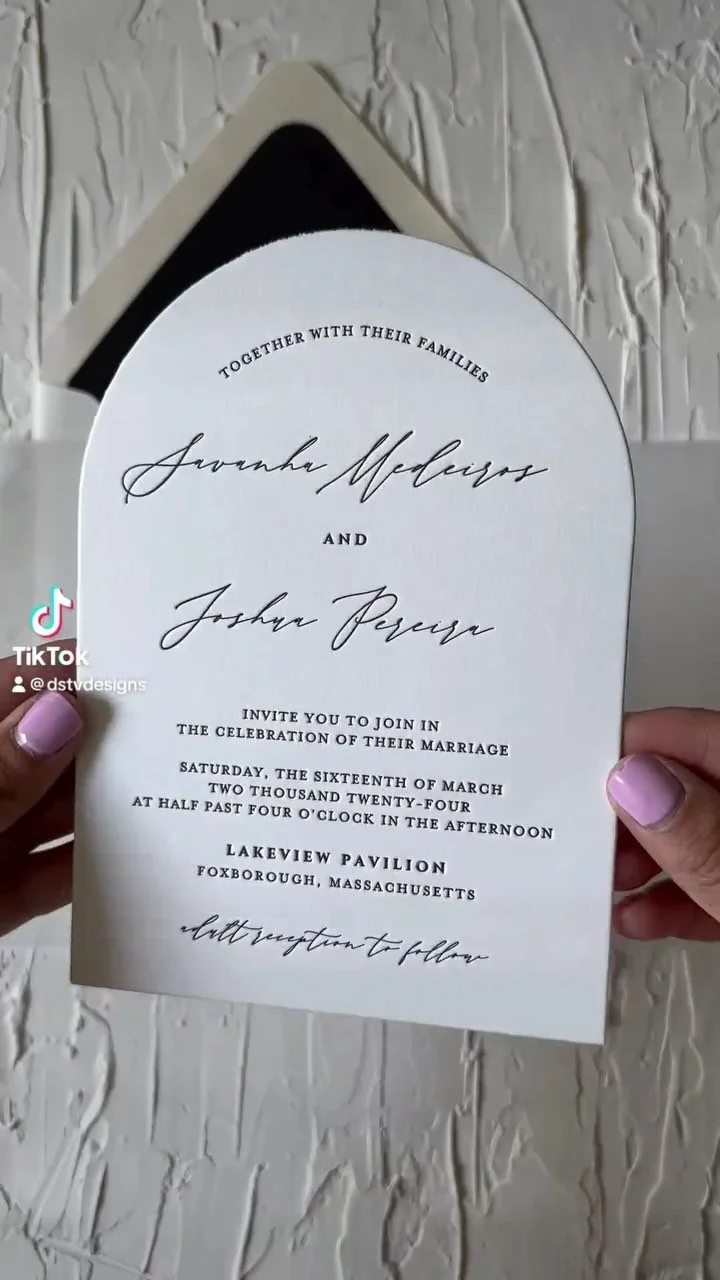 TOGETHER WITH THEIR FAMILIES
Savanha Medeiros
AND
Joshua Pereira
INVITE YOU TO JOIN IN
THE CELEBRATION OF THEIR MARRIAGE
SATURDAY, THE SIXTEENTH OF MARCH
TWO THOUSAND TWENTY-FOUR
AT HALF PAST FOUR O'CLOCK IN THE AFTERNOON
LAKEVIEW PAVILION
FOXBOROUGH, MASSACHUSETTS
adult reception to follow
TikTok
@dstvdesigns